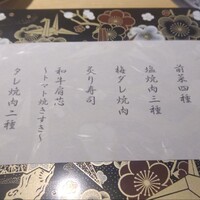 前菜四種
塩焼肉三種
梅ダレ焼肉
炙り寿司
和牛肩芯
〜トマト焼きすき〜
タレ焼肉二種